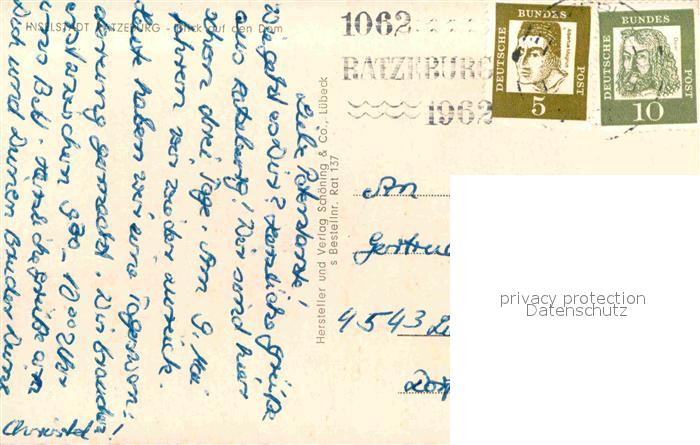 INSELSTADT RATZEBURG - Blick auf den Dom
1062
RATZEBURG
1962
DEUTSCHE
BUNDES
POST
Albertus Magnus
5
DEUTSCHE
BUNDES
POST
Dürer
10
Hersteller und Verlag Schöning & Co., Lübeck
s Bestellnr. Rat 137
Liebe
Wie geht es Dir? Herzliche Grüße
aus Ratzeburg! Wir sind hier
schon drei Tage. Am 9. Mai
fahren wir wieder zurück.
haben wir eine
gemacht. Wir brauchen
zwischen 9 30 - 10 00 Uhr
Herzliche Grüße an
Dich und Deinen Bruder Deine
Christel
An
Gertru
4543
privacy protection
Datenschutz